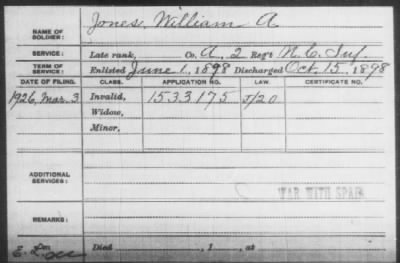 NAME OF SOLDIER: Jones, William A.
SERVICE: Late rank, Co. A, 2 Reg't N.C. Inf.
TERM OF SERVICE: Enlisted June 1, 1898 Discharged Oct. 15, 1898
DATE OF FILING. CLASS. APPLICATION NO. LAW. CERTIFICATE NO.
1926, Mar. 3 Invalid, 1533175 J/20
Widow,
Minor,
ADDITIONAL SERVICES:
WAR WITH SPAIN
REMARKS:
Died , 1 , at